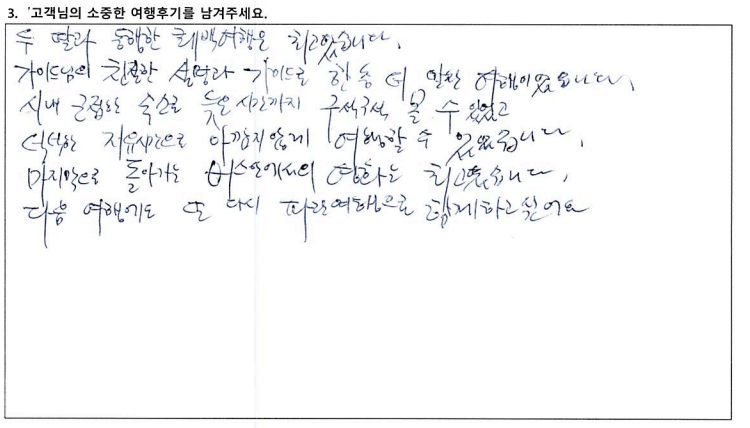 3. '고객님의 소중한 여행후기를 남겨주세요.
두 딸과 동행한 퀘백여행은 최고였습니다.
가이드님의 친절한 설명과 가이드로 한층 더 알찬 여행이였습니다.
시내 근접한 숙소로 늦은시간까지 구석구석 볼 수 있었고
넉넉한 자유시간으로 아깝지않게 여행할 수 있었습니다.
마지막으로 돌아가는 버스안에서의 영화는 최고였습니다.
다음 여행에도 또 다시 파란여행으로 함께하고싶어요